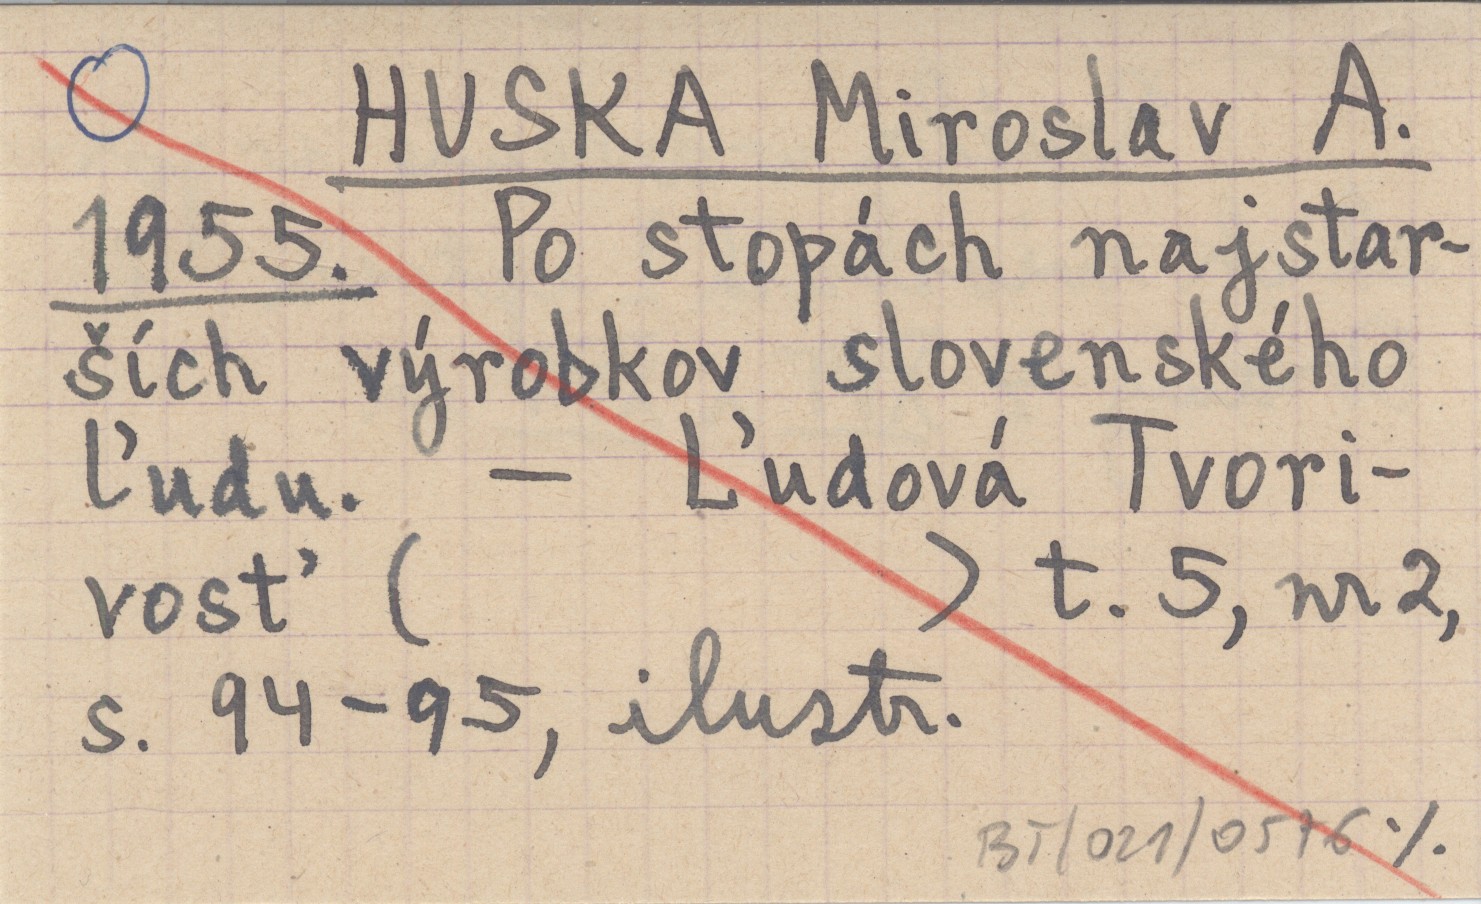 HUSKA Miroslav A.
1955. Po stopách najstar-
ších výrobkov slovenského
Ľudu. — Ľudová Tvori-
vosť ( ) t. 5, nr 2,
s. 94-95, ilustr.
BT/021/0576 ·/.